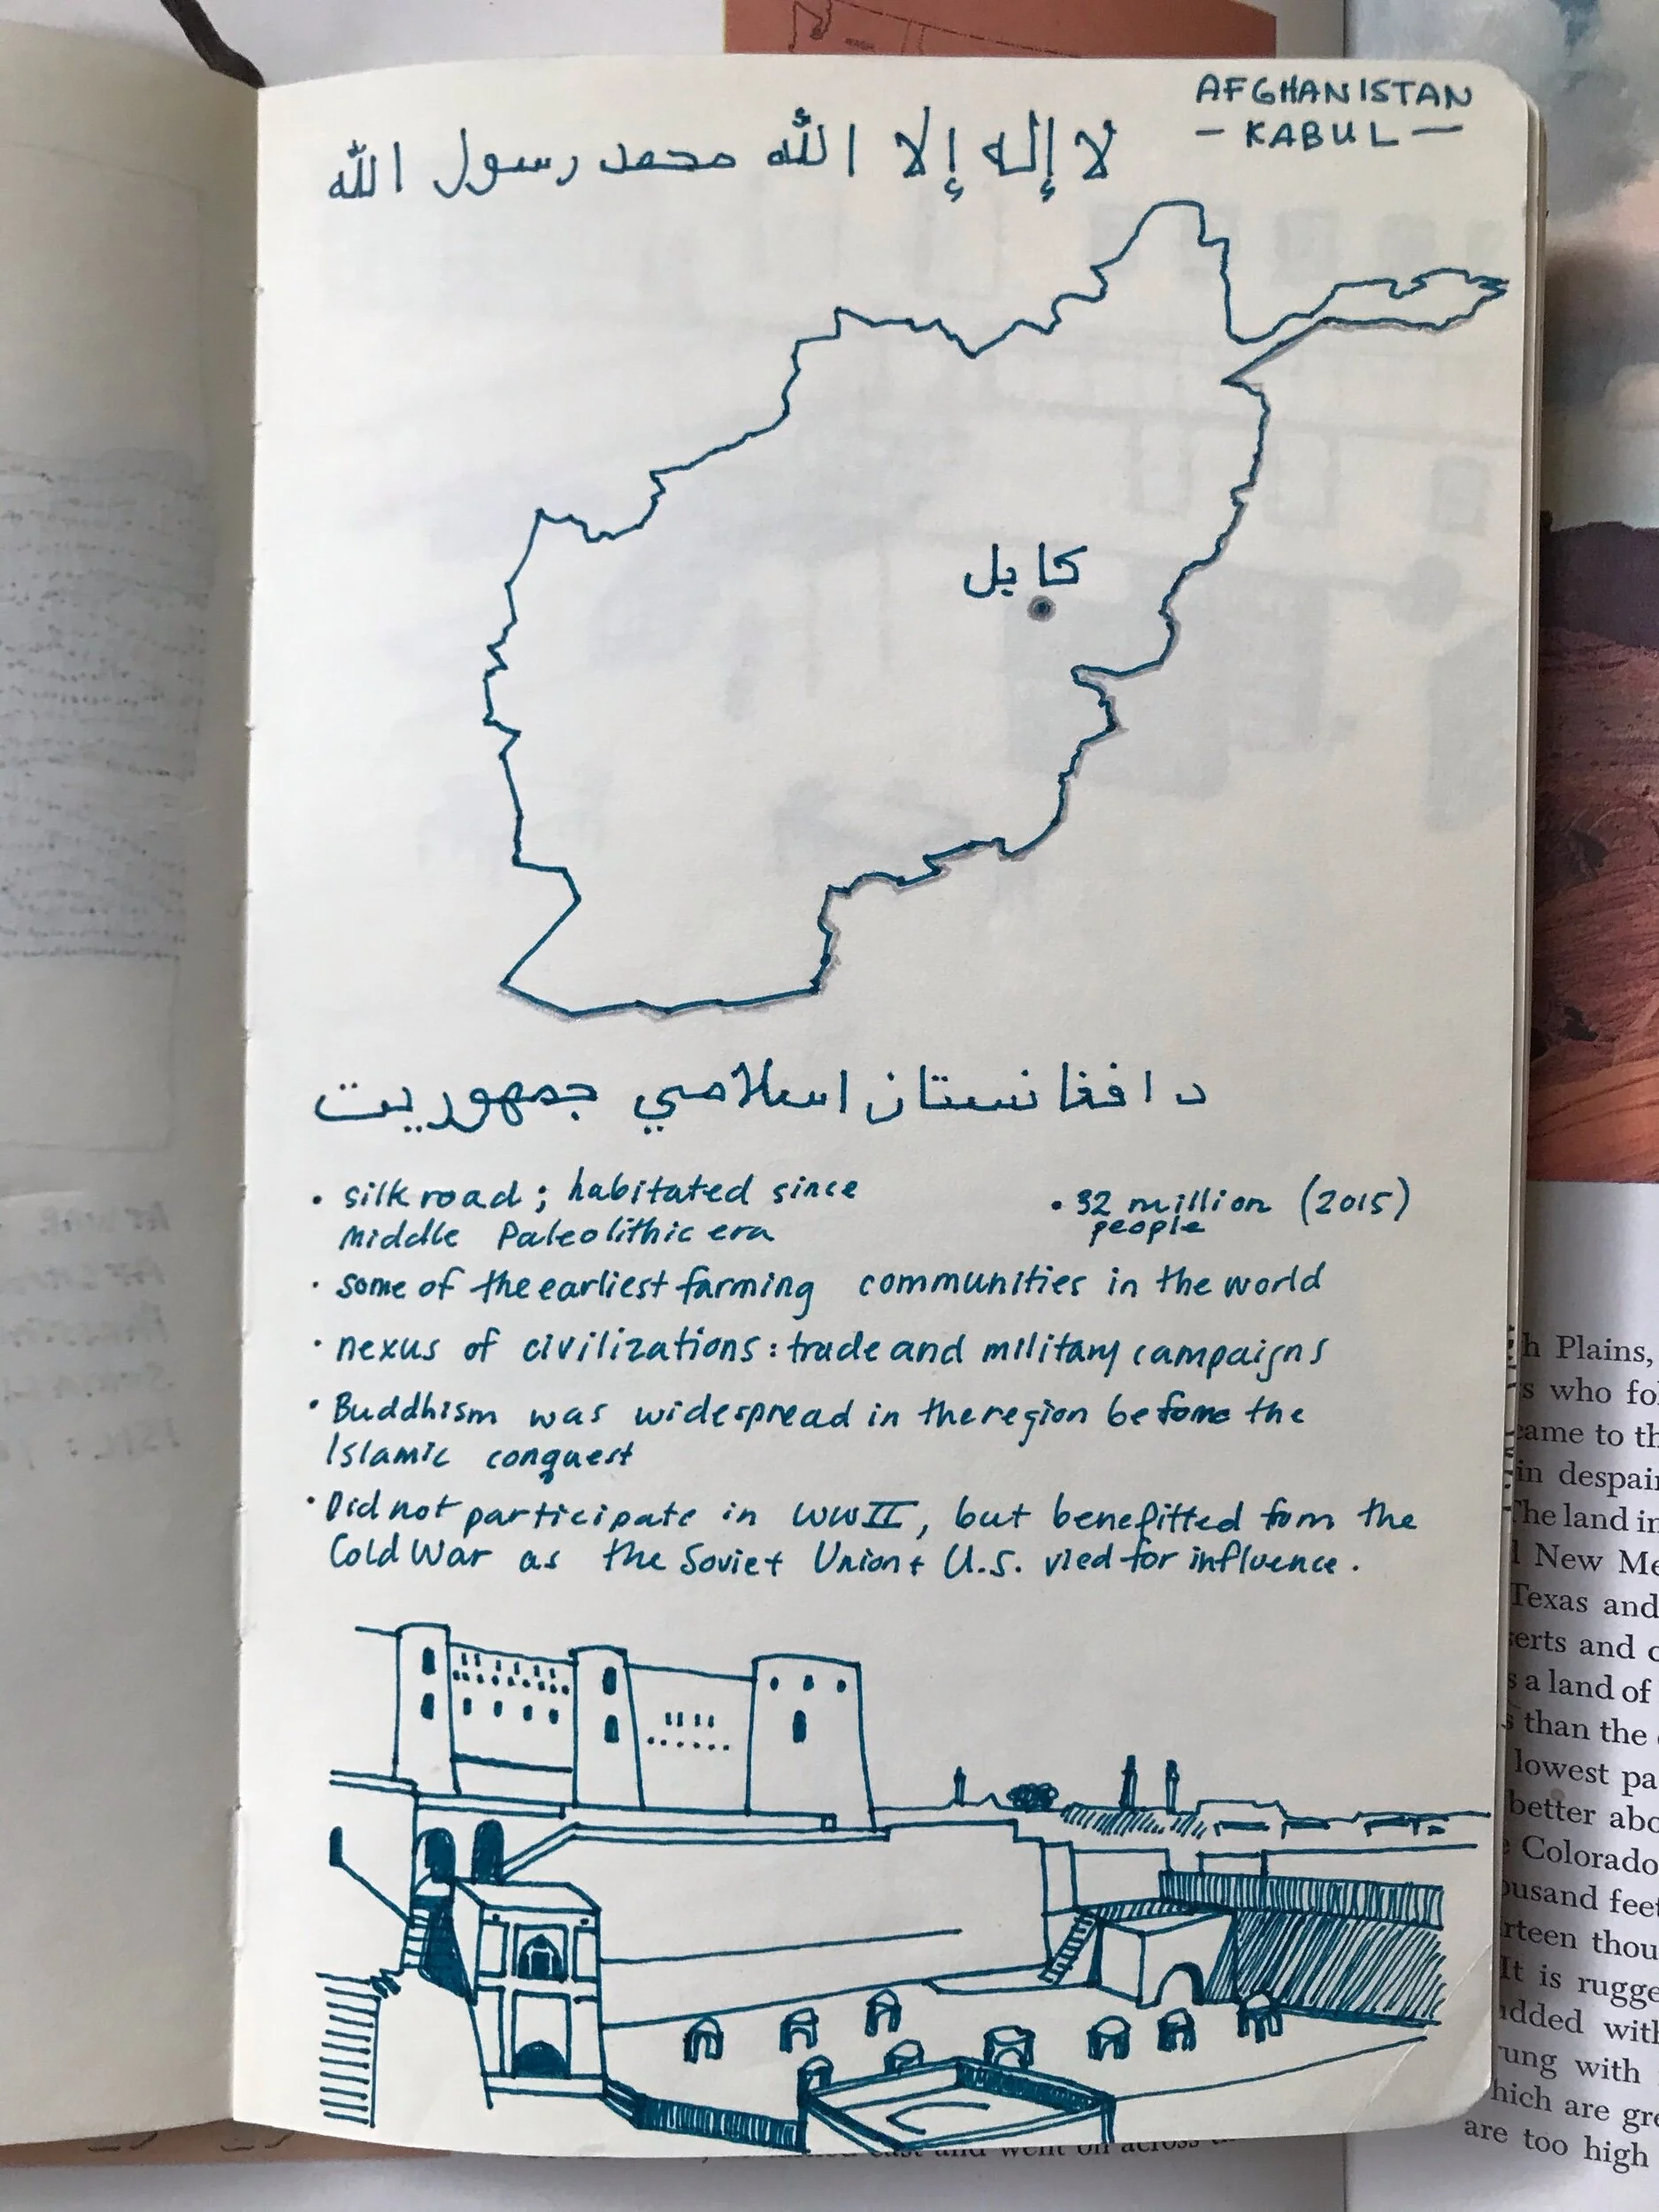 AFGHANISTAN
- KABUL -
لا إله إلا الله محمد رسول الله
كابل
د افغانستان اسلامي جمهوريت
• silk road; habitated since
Middle Paleolithic era
• 32 million (2015)
people
• some of the earliest farming communities in the world
• nexus of civilizations: trade and military campaigns
• Buddhism was widespread in the region before the
Islamic conquest
• Did not participate in WWII, but benefitted from the
Cold War as the Soviet Union + U.S. vied for influence.
h Plains,
s who fo
came to th
in despai
The land in
New Me
Texas and
erts and
s a land of
s than the
lowest pa
better abo
Colorado
ousand feet
rteen thou
It is rugge
dded with
rung with
hich are gre
are too high
and went on across